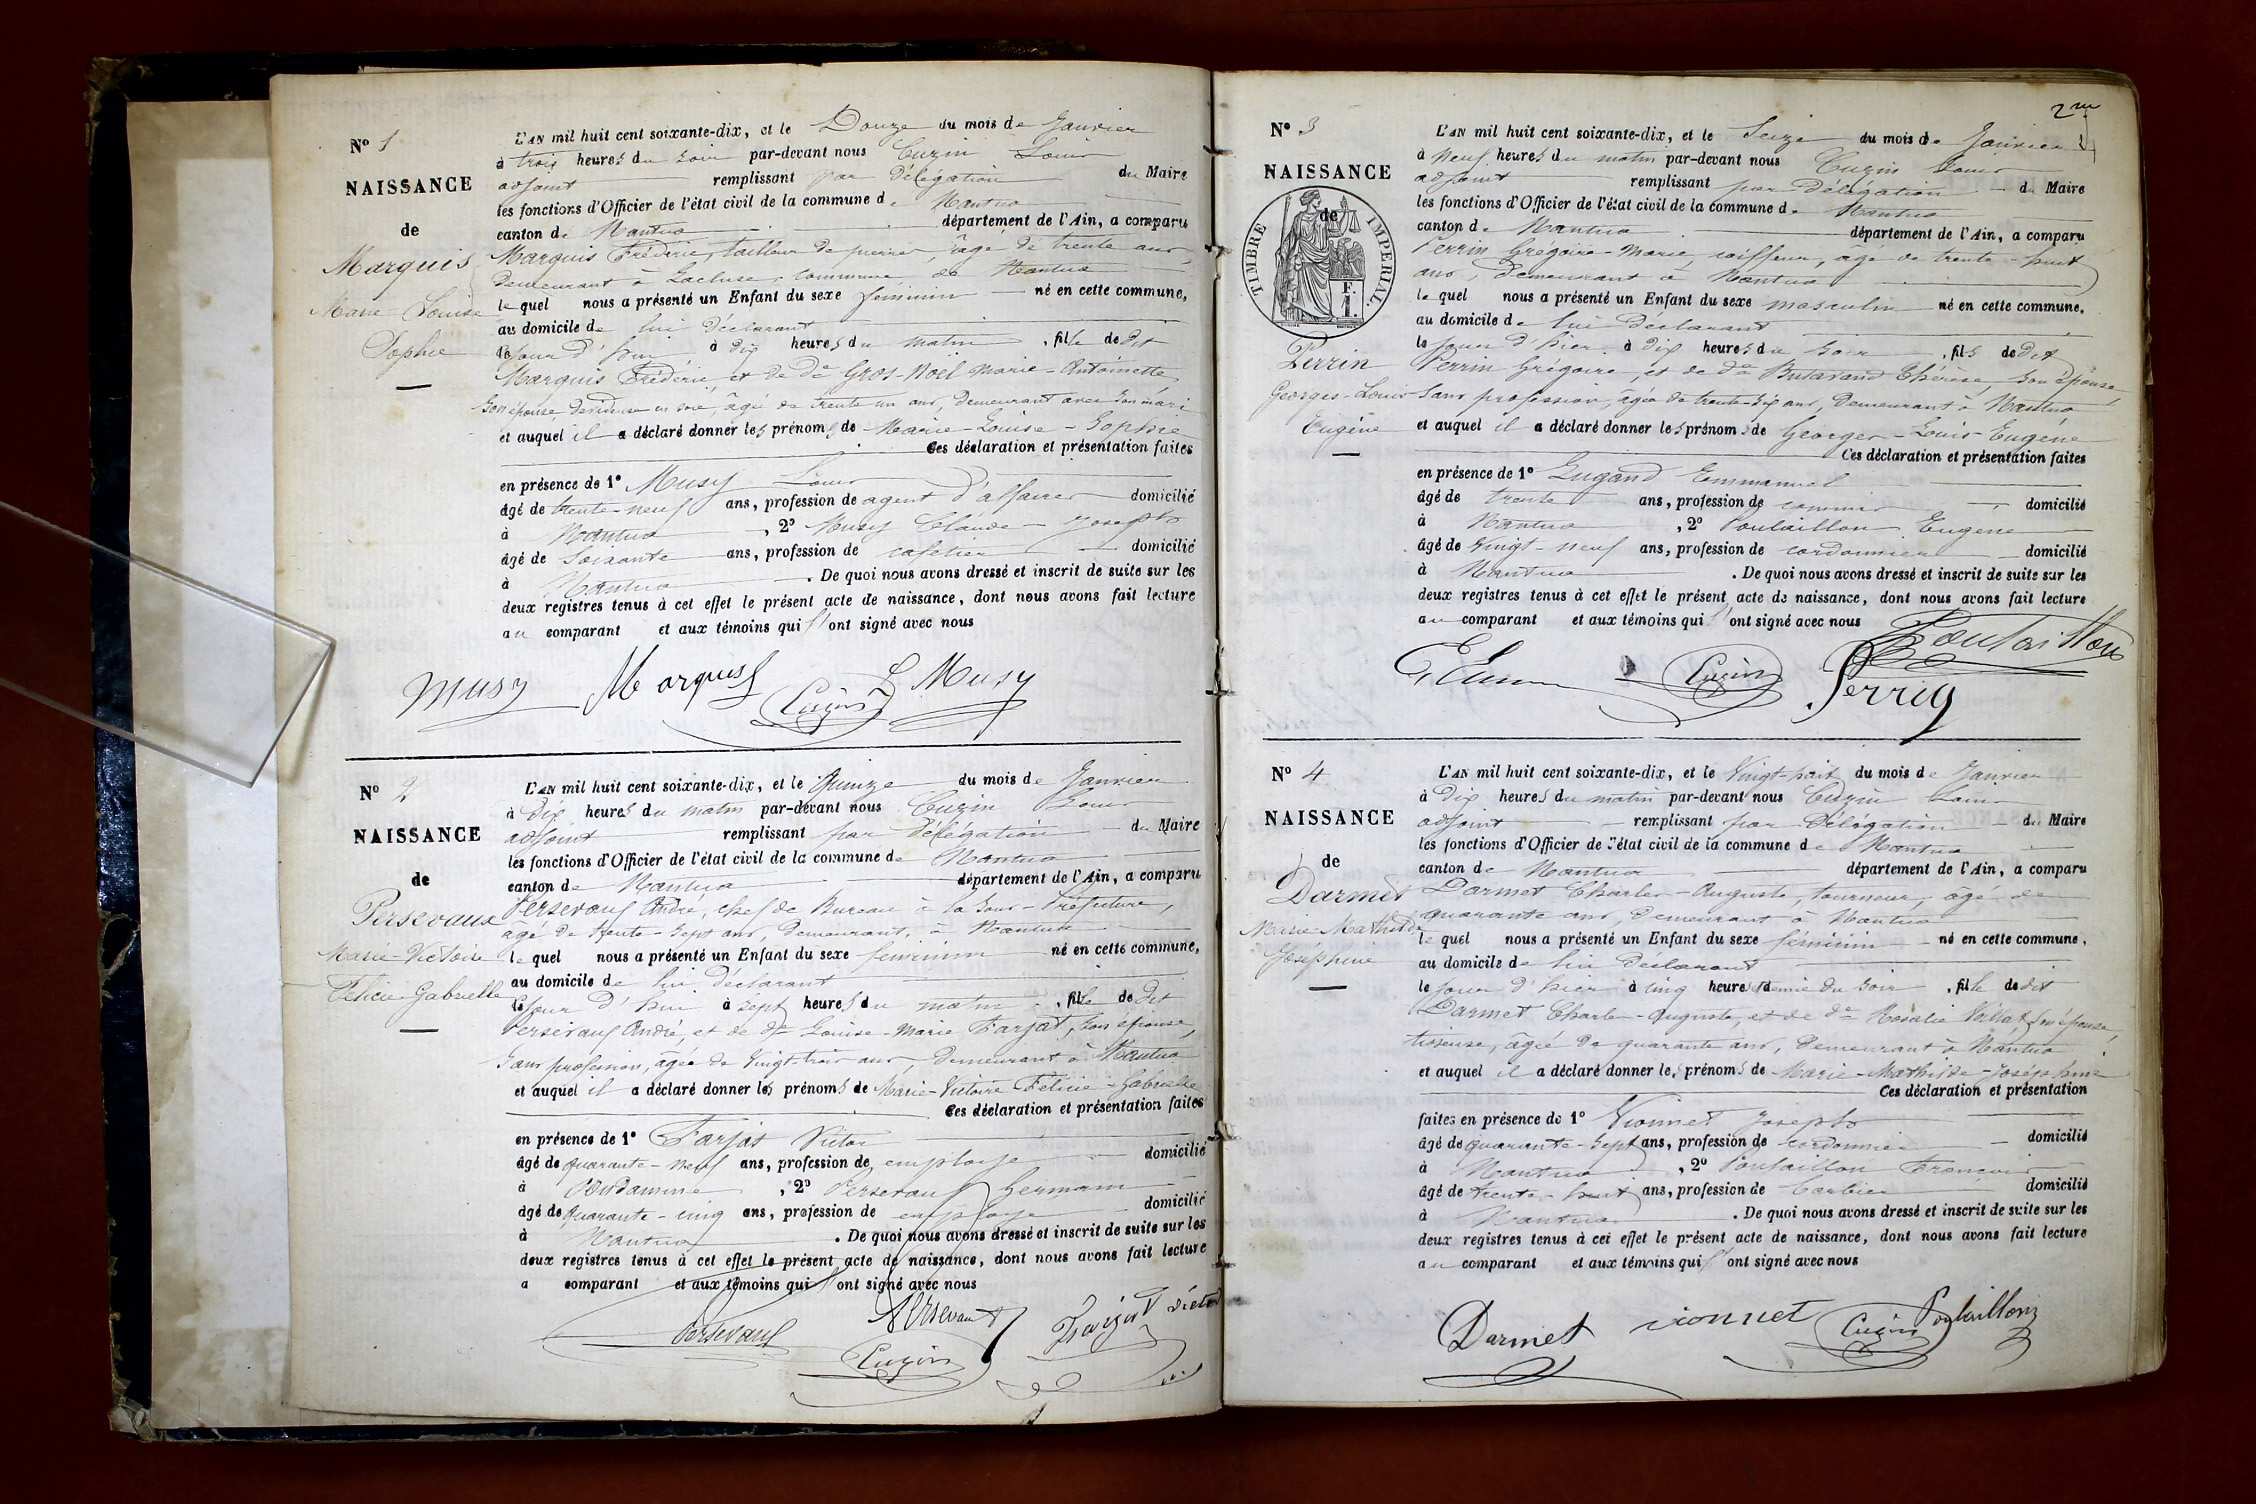 Nº 1
NAISSANCE
de
Marquis
Marie Louise
Sophie
L'AN mil huit cent soixante-dix, et le Douze du mois de Janvier
à trois heures du soir par-devant nous Cuzin Louis
adjoint remplissant par Délégation du Maire
les fonctions d'Officier de l'état civil de la commune de Nantua
canton de Nantua département de l'Ain, a comparu
Marquis Frédéric, tailleur de pierres, âgé de trente ans,
Demeurant à Lacluse, commune de Nantua
lequel nous a présenté un Enfant du sexe féminin né en cette commune,
au domicile de lui déclarant
le jour d'hui à dix heures du matin, fille de dit
Marquis Frédéric, et de de Gros-Noël Marie-Antoinette
son épouse dévideuse en soie, âgé de trente un ans, Demeurant avec son mari
et auquel il a déclaré donner les prénoms de Marie-Louise-Sophie
Ces déclaration et présentation faites
en présence de 1º Musy Louis
âgé de trente-neuf ans, profession de agent d'affaires domicilié
à Nantua, 2º Musy Claude-Joseph
âgé de Soixante ans, profession de cafetier domicilié
à Nantua. De quoi nous avons dressé et inscrit de suite sur les
deux registres tenus à cet effet le présent acte de naissance, dont nous avons fait lecture
au comparant et aux témoins qui l'ont signé avec nous
Musy Marquis Cuzin L Musy
Nº 2
NAISSANCE
de
Persevaux
Marie-Victoire
Félicie-Gabrielle
L'AN mil huit cent soixante-dix, et le Quinze du mois de Janvier
à Dix heures du matin par-devant nous Cuzin Louis
adjoint remplissant par Délégation du Maire
les fonctions d'Officier de l'état civil de la commune de Nantua
canton de Nantua département de l'Ain, a comparu
Persevaux André, chef de Bureau à la Sous-Préfecture,
âgé de trente-sept ans, Demeurant, à Nantua
lequel nous a présenté un Enfant du sexe féminin né en cette commune,
au domicile de lui déclarant
le jour d'hui à sept heures du matin, fille de Dit
Persevaux André, et de de Louise-Marie Farjat, son épouse,
Sans profession, âgée de Vingt-trois ans, Demeurant à Nantua
et auquel il a déclaré donner les prénoms de Marie-Victoire Félicie-Gabrielle
Ces déclaration et présentation faites
en présence de 1º Farjat Victor
âgé de quarante-neuf ans, profession de employé domicilié
à, 2º Persevaux Germain
âgé de quarante-cinq ans, profession de employé domicilié
à Nantua. De quoi nous avons dressé et inscrit de suite sur les
deux registres tenus à cet effet le présent acte de naissance, dont nous avons fait lecture
a comparant et aux témoins qui l'ont signé avec nous
Persevaux Persevaux Cuzin Farjat Victor
2me
Nº 3
NAISSANCE
de
TIMBRE IMPERIAL.
F.
1.
Perrin
Georges-Louis
Eugène
L'AN mil huit cent soixante-dix, et le Seize du mois de Janvier
à Neuf heures du matin par-devant nous Cuzin Louis
adjoint remplissant par Délégation du Maire
les fonctions d'Officier de l'état civil de la commune de Nantua
canton de Nantua département de l'Ain, a comparu
Perrin Grégoire-Marie, coiffeur, âgé de trente-huit
ans, Demeurant à Nantua
lequel nous a présenté un Enfant du sexe masculin né en cette commune,
au domicile de lui déclarant
le jour d'hier à dix heures du soir, fils de dit
Perrin Grégoire, et de de Butavand Thérèse, son épouse,
Sans profession, âgée de trente-six ans, Demeurant à Nantua
et auquel il a déclaré donner les prénoms de Georges-Louis-Eugène
Ces déclaration et présentation faites
en présence de 1º Lugand Emmanuel
âgé de trente ans, profession de commis domicilié
à Nantua, 2º Poulaillon Eugène
âgé de Vingt-neuf ans, profession de cordonnier domicilié
à Nantua. De quoi nous avons dressé et inscrit de suite sur les
deux registres tenus à cet effet le présent acte de naissance, dont nous avons fait lecture
au comparant et aux témoins qui l'ont signé avec nous
Poulaillon
Cuzin Perrin
Nº 4
NAISSANCE
de
Darmet
Marie-Mathilde
Joséphine
L'AN mil huit cent soixante-dix, et le Vingt-huit du mois de Janvier
à Dix heures du matin par-devant nous Cuzin Louis
adjoint remplissant par Délégation du Maire
les fonctions d'Officier de l'état civil de la commune de Nantua
canton de Nantua département de l'Ain, a comparu
Darmet Charles-Auguste, tourneur, âgé de
quarante ans, Demeurant à Nantua
lequel nous a présenté un Enfant du sexe féminin né en cette commune,
au domicile de lui déclarant
le jour d'hier à cinq heures demie du soir, fille de dit
Darmet Charles-Auguste, et de de Rosalie Villat, son épouse,
tisseuse, âgée de quarante ans, Demeurant à Nantua
et auquel il a déclaré donner les prénoms de Marie-Mathilde-Joséphine
Ces déclaration et présentation
faites en présence de 1º Vionnet Joseph
âgé de quarante-sept ans, profession de cordonnier domicilié
à Nantua, 2º Poulaillon François
âgé de trente-huit ans, profession de Barbier domicilié
à Nantua. De quoi nous avons dressé et inscrit de suite sur les
deux registres tenus à cet effet le présent acte de naissance, dont nous avons fait lecture
au comparant et aux témoins qui l'ont signé avec nous
Darmet vionnet Cuzin Poulaillon